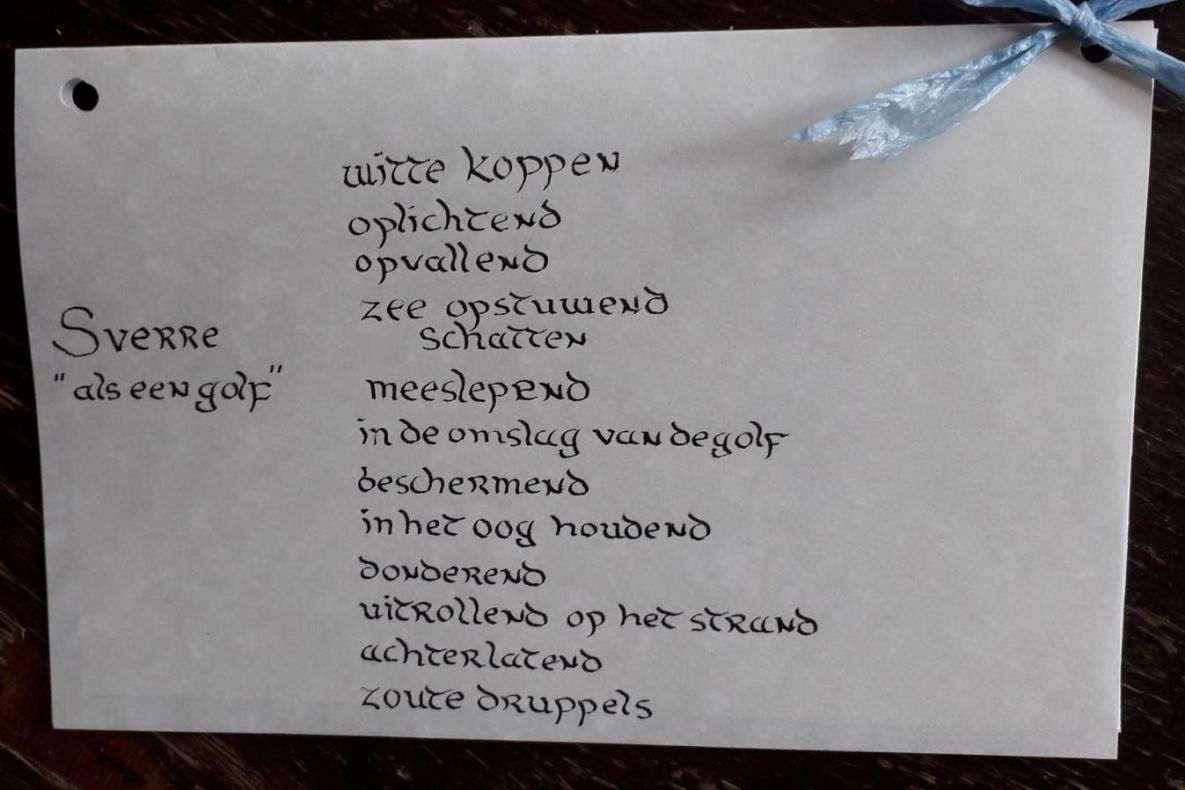 Sverre
"als een golf"
witte koppen
oplichtend
opvallend
zee opstuwend
schatten
meeslepend
in de omslag van de golf
beschermend
in het oog houdend
donderend
uitrollend op het strand
achterlatend
zoute druppels